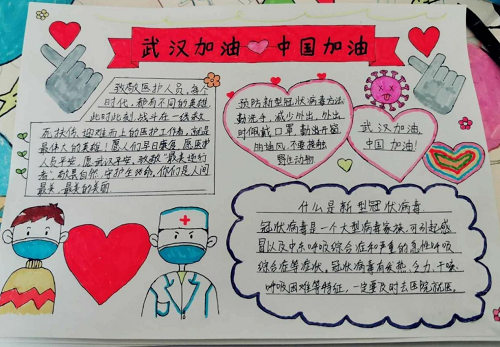 武汉加油 中国加油
致敬医护人员,每个
时代,都有不同的英雄
此时此刻,战斗在一线救
死扶伤,迎难而上的医护工作者,就是
最伟大的英雄!愿人们早日康复,愿医护
人员平安,愿武汉平安,致敬"最美逆行
者"敬畏自然,守护生命,你们是人间
最美,最美的美丽
预防新型冠状病毒方法
勤洗手,减少外出,外出
时佩戴口罩,勤出开窗
朋通风,不要接触
野生动物
武汉加油,
中国加油!
什么是新型冠状病毒.
冠状病毒是一个大型病毒家族,可引起感
冒以及中东呼吸综合症和严重的急性呼吸
综合症等症状,冠状病毒有发热、乏力、干咳、
呼吸困难等特征,一定要及时去医院就医.